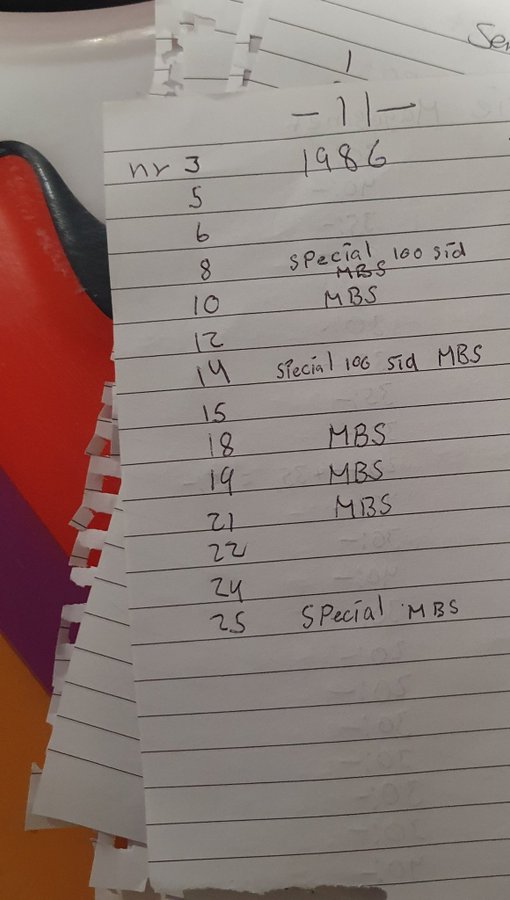 Ser
1
-11-
nr 3 1986
5
6
8 special 100 sid
MBS
10 MBS
12
14 special 100 sid MBS
15
18 MBS
19 MBS
21 MBS
22
24
25 Special MBS